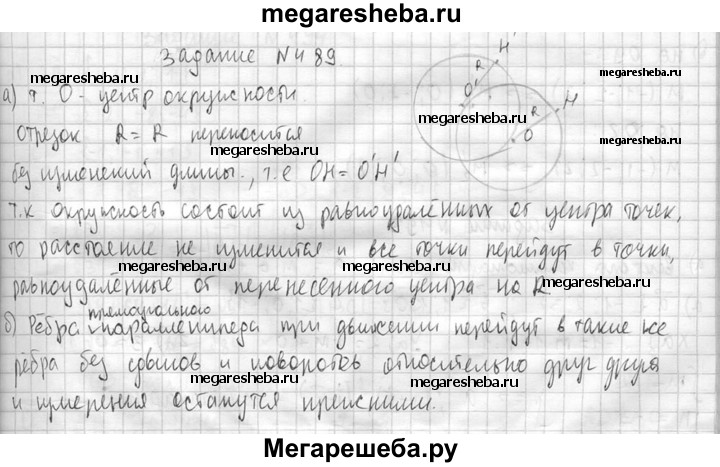 megaresheba.ru
Задание N489.
H'
R
O'
H
R
O
megaresheba.ru
megaresheba.ru
megaresheba.ru
megaresheba.ru
а) т. O - центр окружности.
отрезок R = R переносится
megaresheba.ru
без изменений длины., т.е OH = O'H'
т.к окружность состоит из равноудалённых от центра точек,
то расстояние не изменится и все точки перейдут в точки,
megaresheba.ru
megaresheba.ru
равноудалённые от перенесённого центра на R
megaresheba.ru
прямоугольного
б) Рёбра параллелипеда при движении перейдут в такие же
megaresheba.ru
рёбра без сдвигов и поворотов относительно друг друга
megaresheba.ru
megaresheba.ru
и измерения останутся прежними.
Мегарешеба.ру